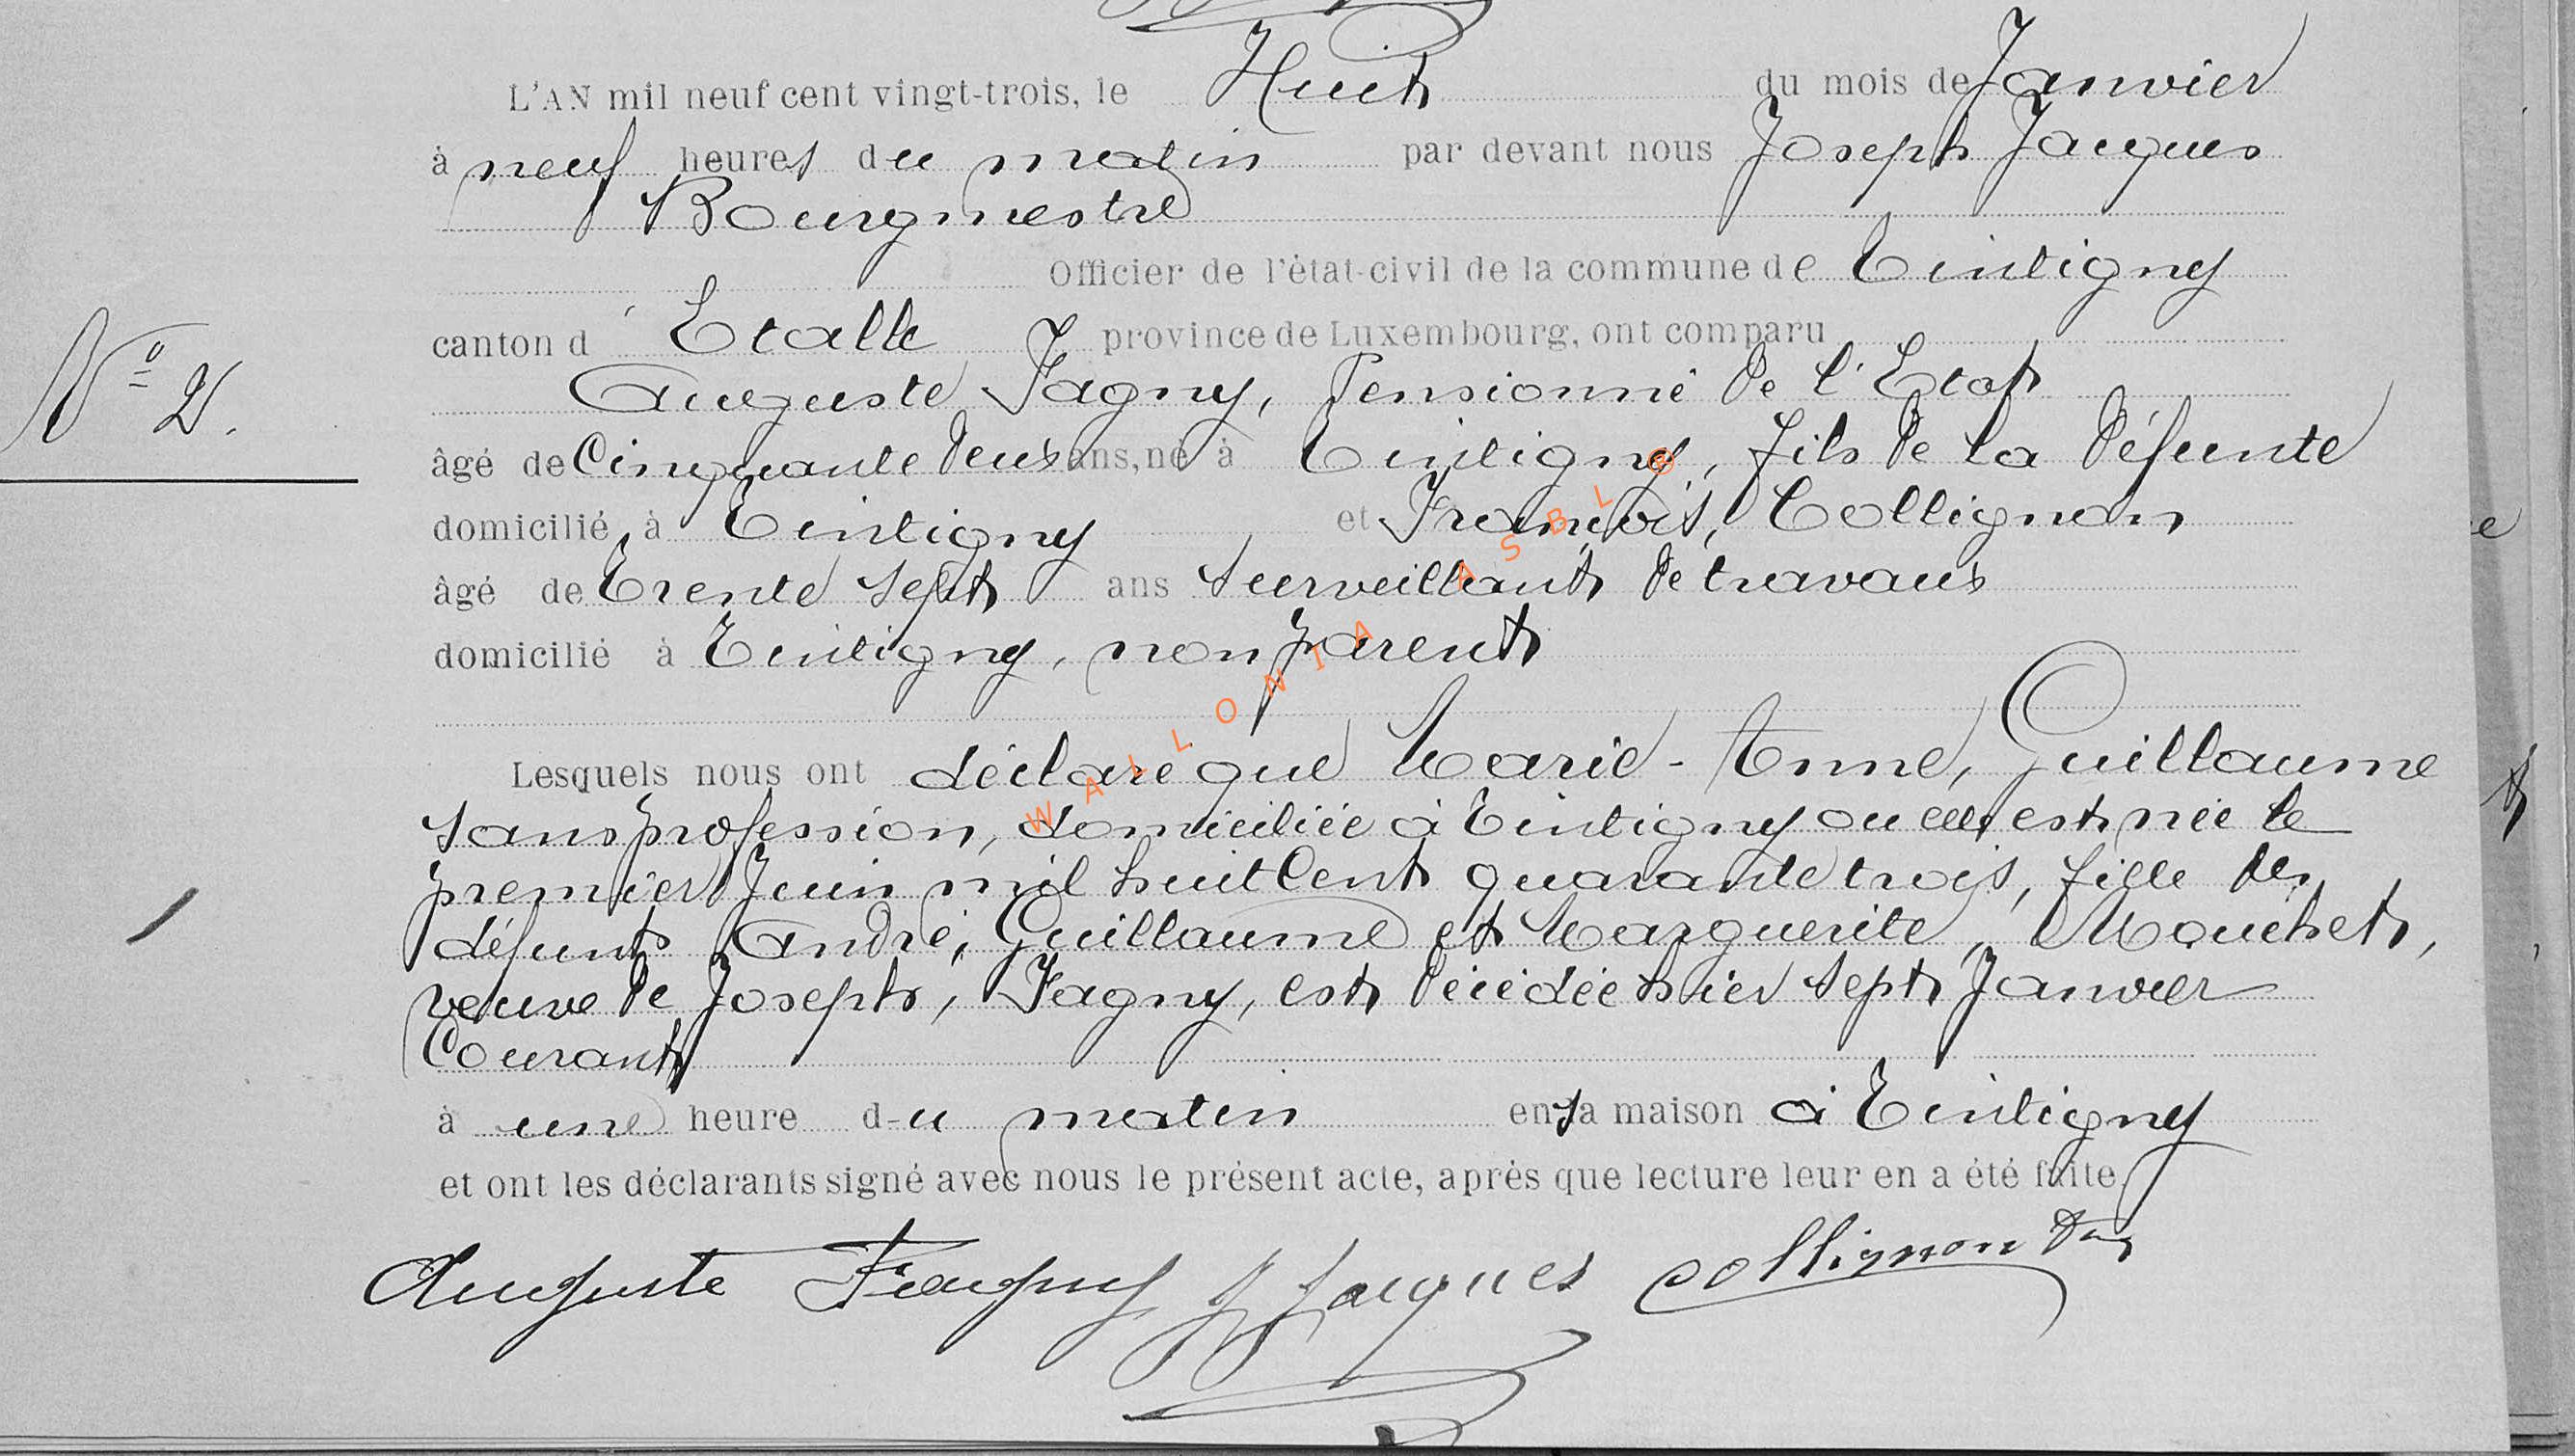 L'AN mil neuf cent vingt-trois, le Huit du mois de Janvier
à neuf heures du matin par devant nous Joseph Jacques
Bourgmestre
Officier de l'état-civil de la commune de Tintigny
canton d'Etalle province de Luxembourg, ont comparu
N° 2.
Auguste Fagny, Pensionné de l'Etat
âgé de Cinquante deux ans, né à Tintigny, fils de la défunte
domicilié à Tintigny et François, Collignon
âgé de Trente sept ans Surveillant de travaux
domicilié à Tintigny, non parent
Lesquels nous ont déclaré que Marie-Anne, Guillaume
sans profession, domiciliée à Tintigny ou elle est née le
premier Juin mil huit Cent quarante trois, fille des
défunts André, Guillaume et Marguerite, Mouchet,
veuve de Joseph, Fagny, est décédée hier sept Janvier
Courant
à une heure du matin en sa maison à Tintigny
et ont les déclarants signé avec nous le présent acte, après que lecture leur en a été faite.
Auguste Fagny J Jacques Collignon
WALLONIA ASBL ®